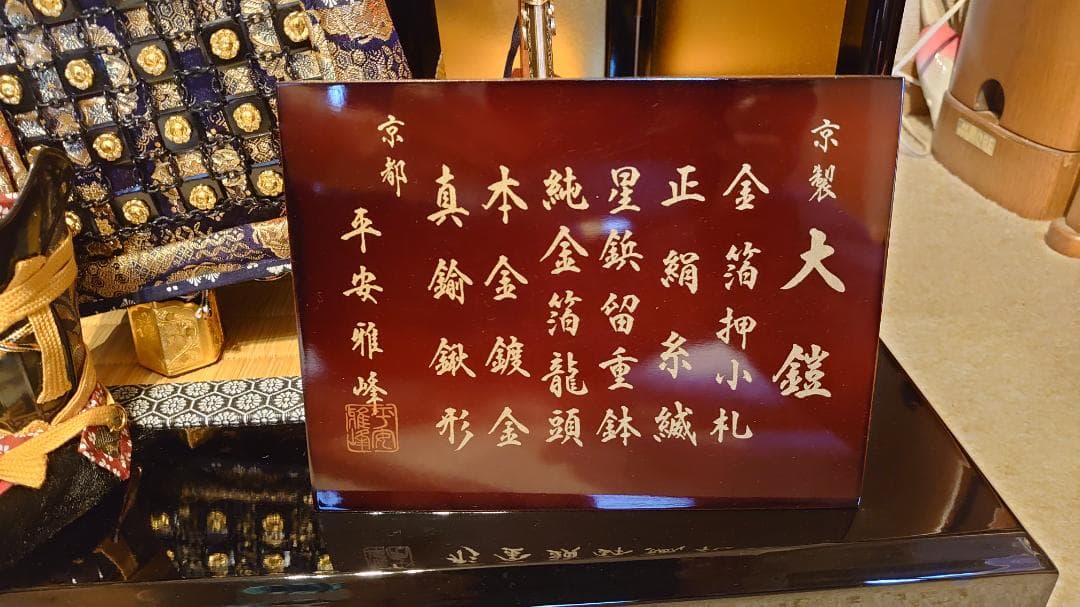 京製 大鎧
金箔押小札
正絹糸縅
星鋲留重鉢
純金箔龍頭
本金鍍金
真鍮鍬形
京都 平安雅峰
平安雅峰